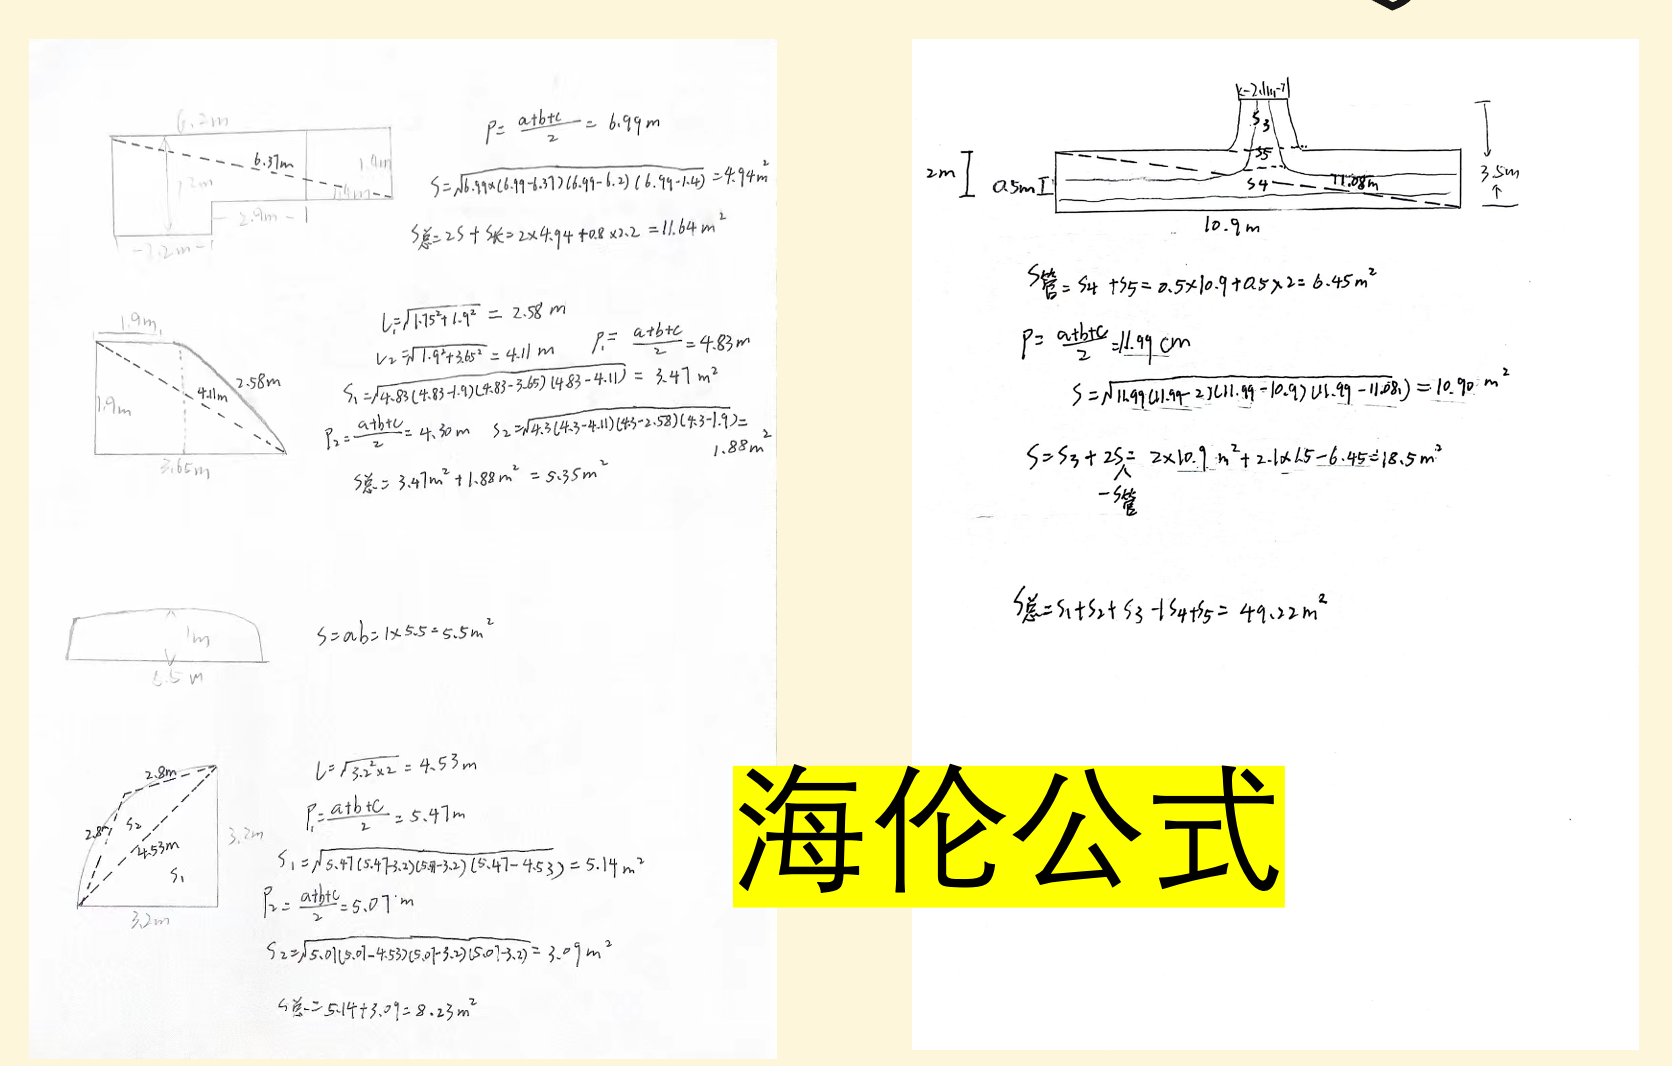 6.2m
6.37m
1.4m
2m
1.4m
2.9m
2.2m
P = (a+b+c)/2 = 6.99m
S=√6.99×(6.99-6.37)(6.99-6.2)(6.99-1.4) = 4.94m²
S总=2S+S长=2×4.94+0.8×2.2=11.64m²
1.9m
2.58m
4.11m
1.9m
3.65m
L₁=√1.75²+1.9² = 2.58m
L₂=√1.9²+3.65² = 4.11m
P₁= (a+b+c)/2 = 4.83m
S₁=√4.83(4.83-1.9)(4.83-3.65)(4.83-4.11) = 3.47m²
P₂= (a+b+c)/2 = 4.30m
S₂=√4.3(4.3-4.11)(4.3-2.58)(4.3-1.9)=
1.88m²
S总=3.47m²+1.88m²=5.35m²
1m
5.5m
S=ab=1×5.5=5.5m²
2.8m
2.8
S₂
4.53m
S₁
3.2m
3.2m
L=√3.2²×2 = 4.53m
P₁= (a+b+c)/2 = 5.47m
S₁=√5.47(5.47-3.2)(5.47-3.2)(5.47-4.53) = 5.14m²
P₂= (a+b+c)/2 = 5.07m
S₂=√5.07(5.07-4.53)(5.07-3.2)(5.07-3.2) = 3.09m²
S总=5.14+3.09=8.23m²
2.1m
S3
S5
S4
11.08m
2m
0.5m
3.5m
10.9m
S管=S4+S5=0.5×10.9+0.5×2=6.45m²
P= (a+b+c)/2 = 11.99cm
S=√11.99(11.99-2)(11.99-10.9)(11.99-11.08) = 10.90m²
S=S3+2S=2×10.9m²+2.1×1.5-6.45=18.5m²
-S管
S总=S1+S2+S3-S4+S5=49.22m²
海伦公式